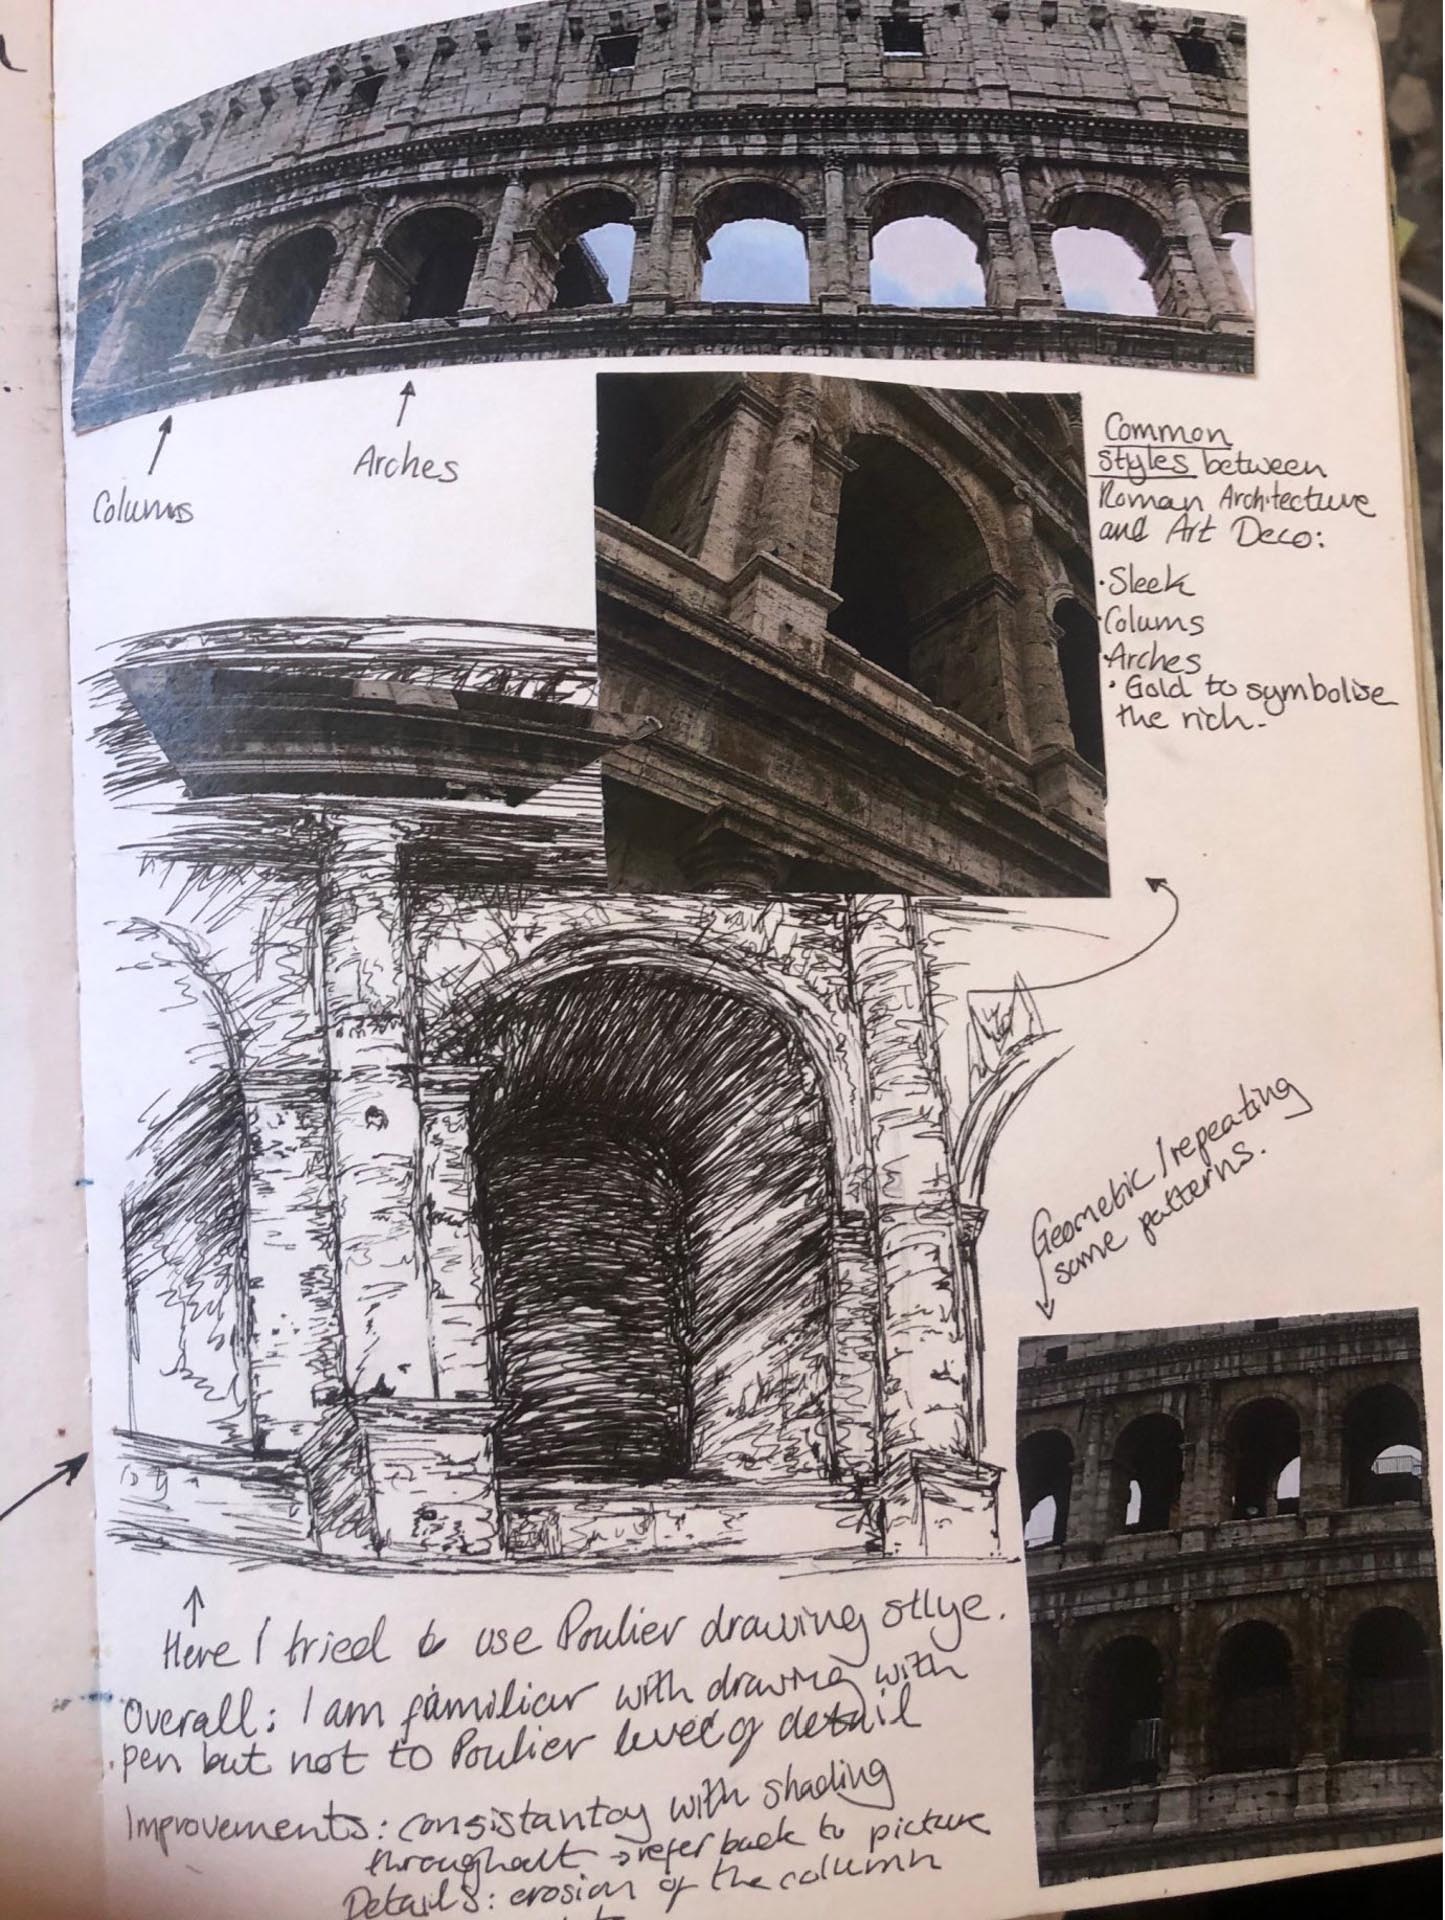 Colums
Arches
Common
styles between
Roman Architecture
and Art Deco:
·Sleek
·Colums
·Arches
·Gold to symbolise
the rich.
Geometric / repeating
same patterns.
Here I tried to use Poulier drawing stlye.
Overall: I am familiar with drawing with
pen but not to Poulier level of detail
Improvements: consistantcy with shading
throughout → refer back to picture
Details: erosion of the column